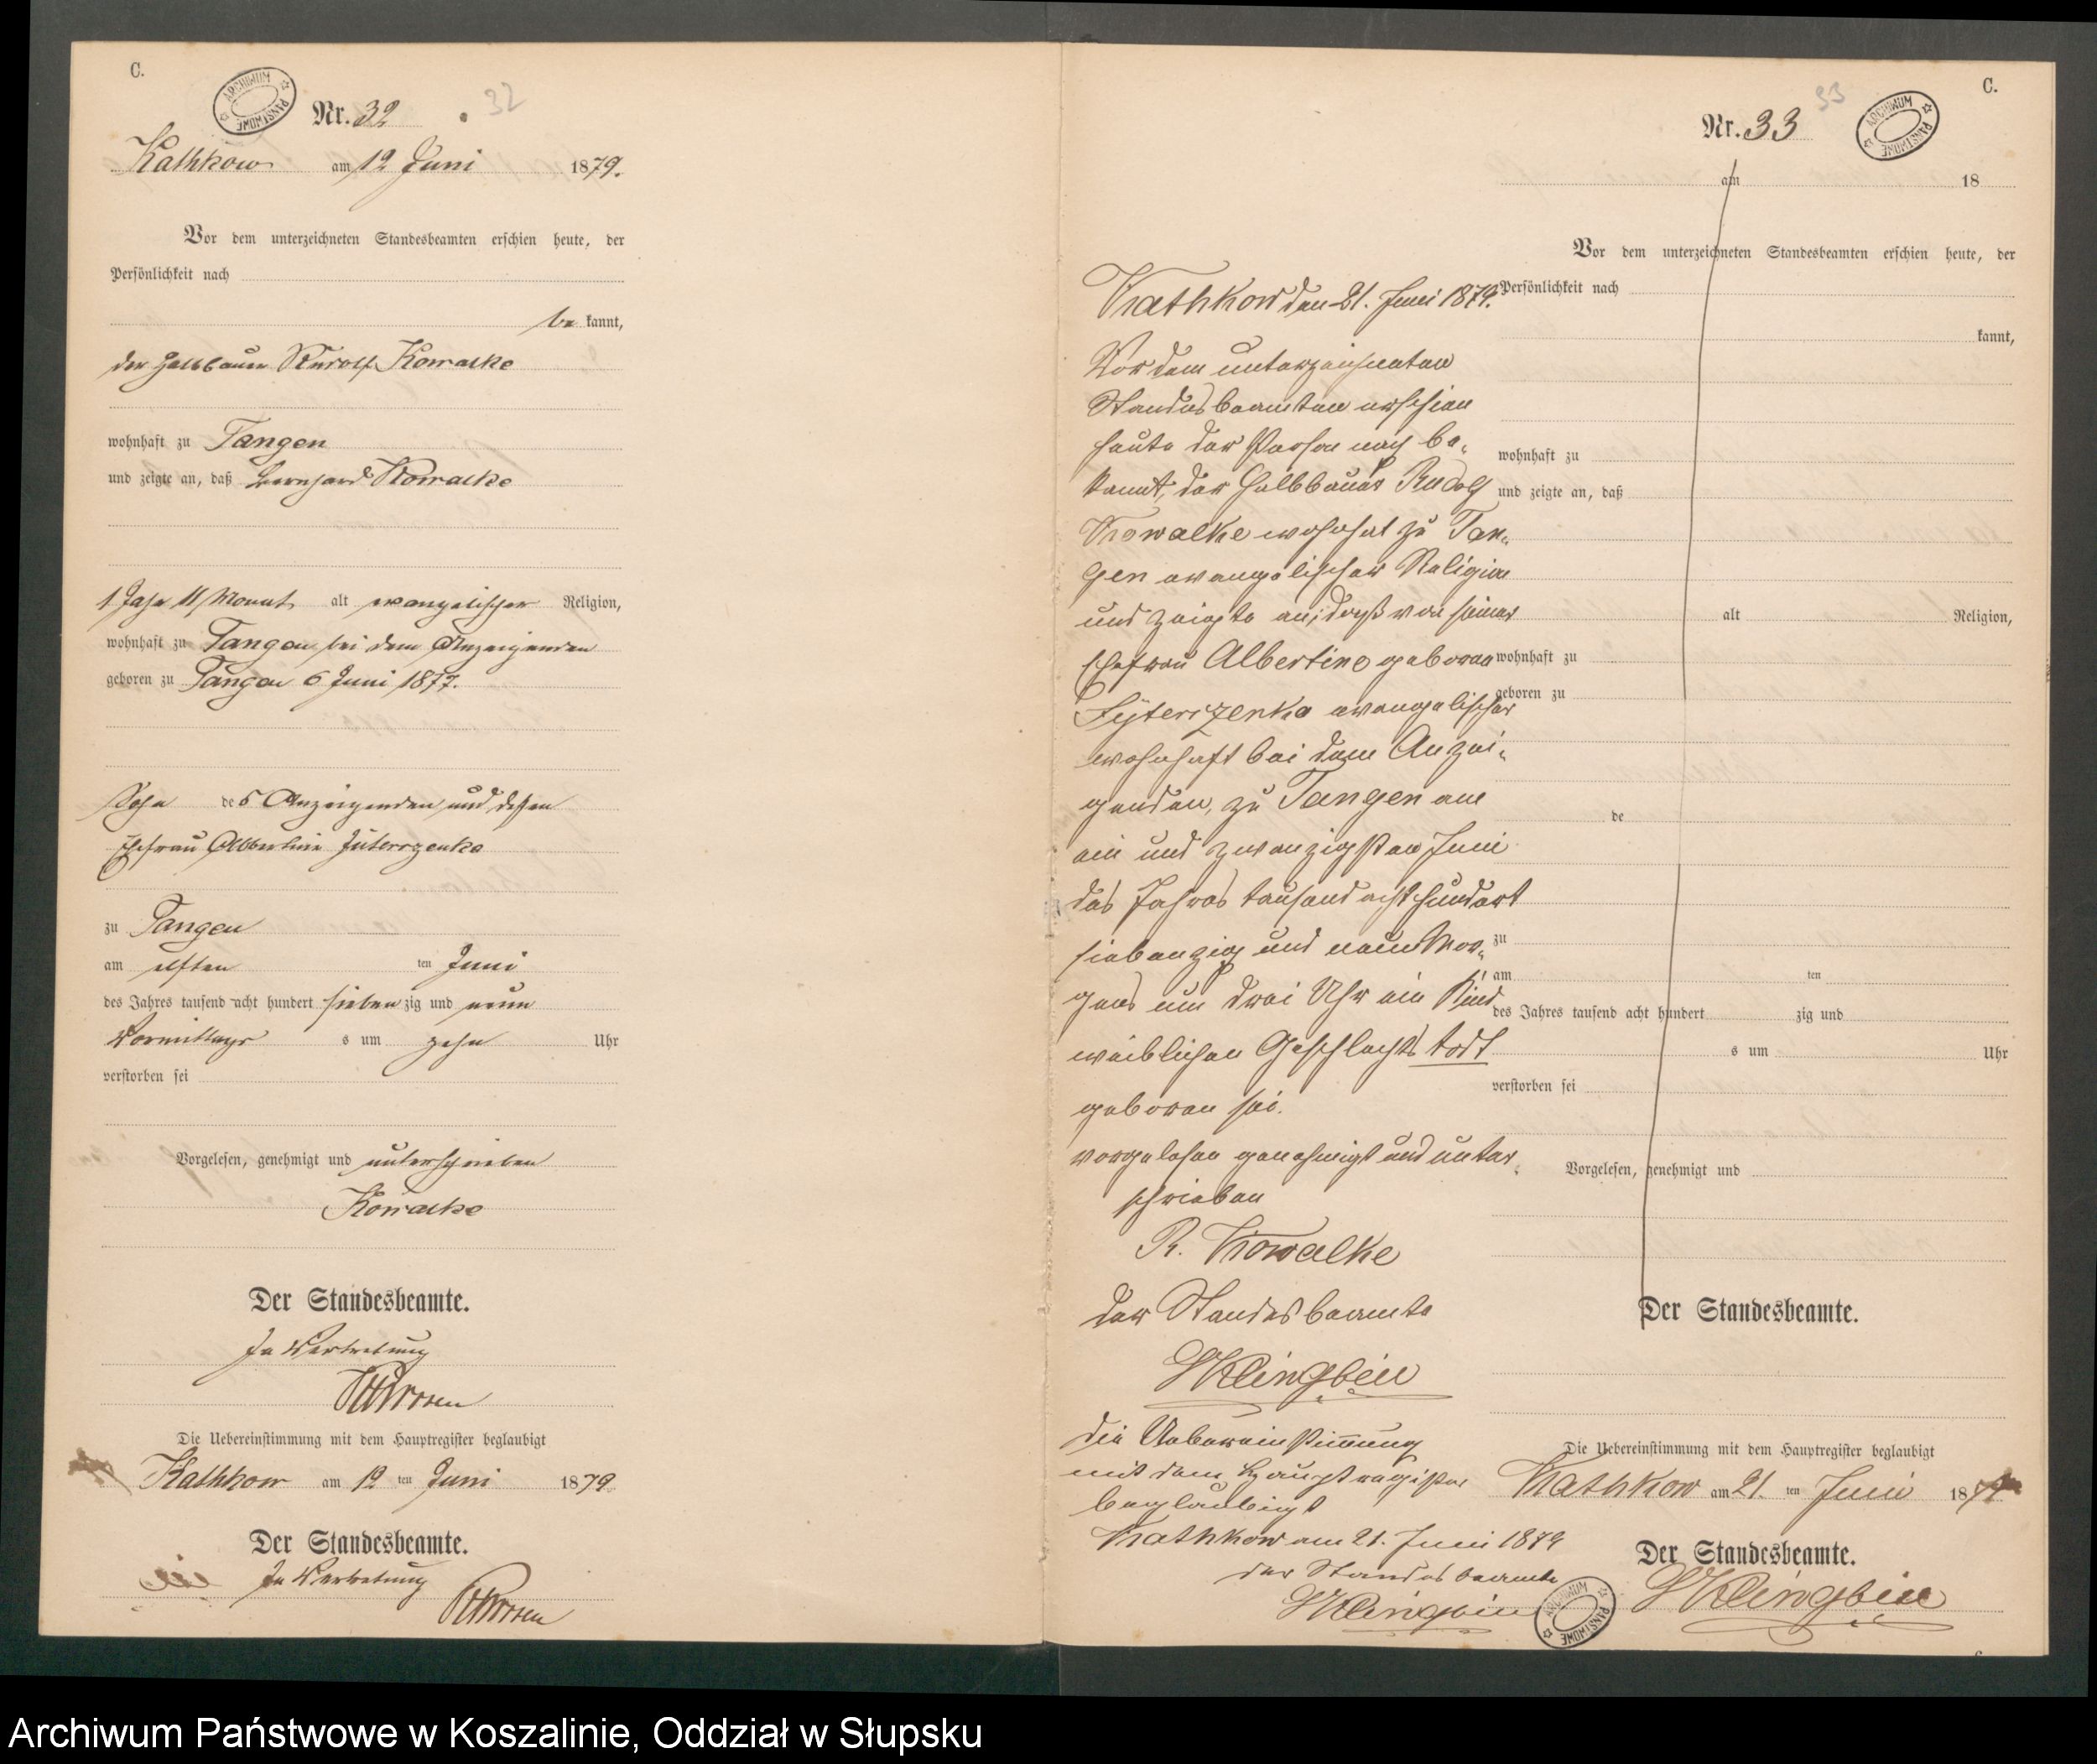 C.
ARCHIWUM PAŃSTWOWE
Nr. 32
32
Kathkow am 12 Juni 1879.
Vor dem unterzeichneten Standesbeamten erschien heute, der
Persönlichkeit nach
be kannt,
der Halbbauer Rudolf Kowalke
wohnhaft zu Tangen
und zeigte an, daß Bernhard Kowalke
1 Jahr 11 Monat alt evangelischer Religion,
wohnhaft zu Tangen, bei dem Anzeigenden
geboren zu Tangen 6 Juni 1877.
Sohn des Anzeigenden und dessen
Ehefrau Albertine
zu Tangen
am elften ten Juni
des Jahres tausend acht hundert sieben zig und neun
Vormittags s um zehn Uhr
verstorben sei
Vorgelesen, genehmigt und unterschrieben
Kowalke
Der Standesbeamte.
In Vertretung
Die Uebereinstimmung mit dem Hauptregister beglaubigt
Kathkow am 12 ten Juni 1879.
Der Standesbeamte.
In Vertretung
C.
33
Nr. 33
ARCHIWUM PAŃSTWOWE
am 18
Vor dem unterzeichneten Standesbeamten erschien heute, der
Persönlichkeit nach
kannt,
wohnhaft zu
und zeigte an, daß
alt Religion,
wohnhaft zu
geboren zu
de
zu
am ten
des Jahres tausend acht hundert zig und
s um Uhr
verstorben sei
Vorgelesen, genehmigt und
Der Standesbeamte.
Die Uebereinstimmung mit dem Hauptregister beglaubigt
Kathkow am 21. ten Juni 1879
Der Standesbeamte.
Klingbeil
Kathkow den 21. Juni 1879.
Vor dem unterzeichneten
Standesbeamten erschien
heute der Person nach be-
kannt, der Halbbauer Rudolf
Kowalke wohnhat zu Tan-
gen evangelischer Religion
und zeigte an, daß von seiner
Ehefrau Albertine geboren
evangelischer
wohnhaft bei dem Anzei-
genden, zu Tangen am
ein und zwanzigsten Juni
des Jahres tausend acht hundert
siebenzig und neun Mor-
gens um drei Uhr ein Kind
weiblichen Geschlechts todt
geboren sei.
vorgelesen genehmigt und unter-
schrieben
R. Kowalke
der Standesbeamte
Klingbeil
die Uebereinstimmung
mit dem Hauptregister
beglaubigt
Kathkow am 21. Juni 1879
der Standesbeamte
Klingbeil
ARCHIWUM PAŃSTWOWE
Archiwum Państwowe w Koszalinie, Oddział w Słupsku